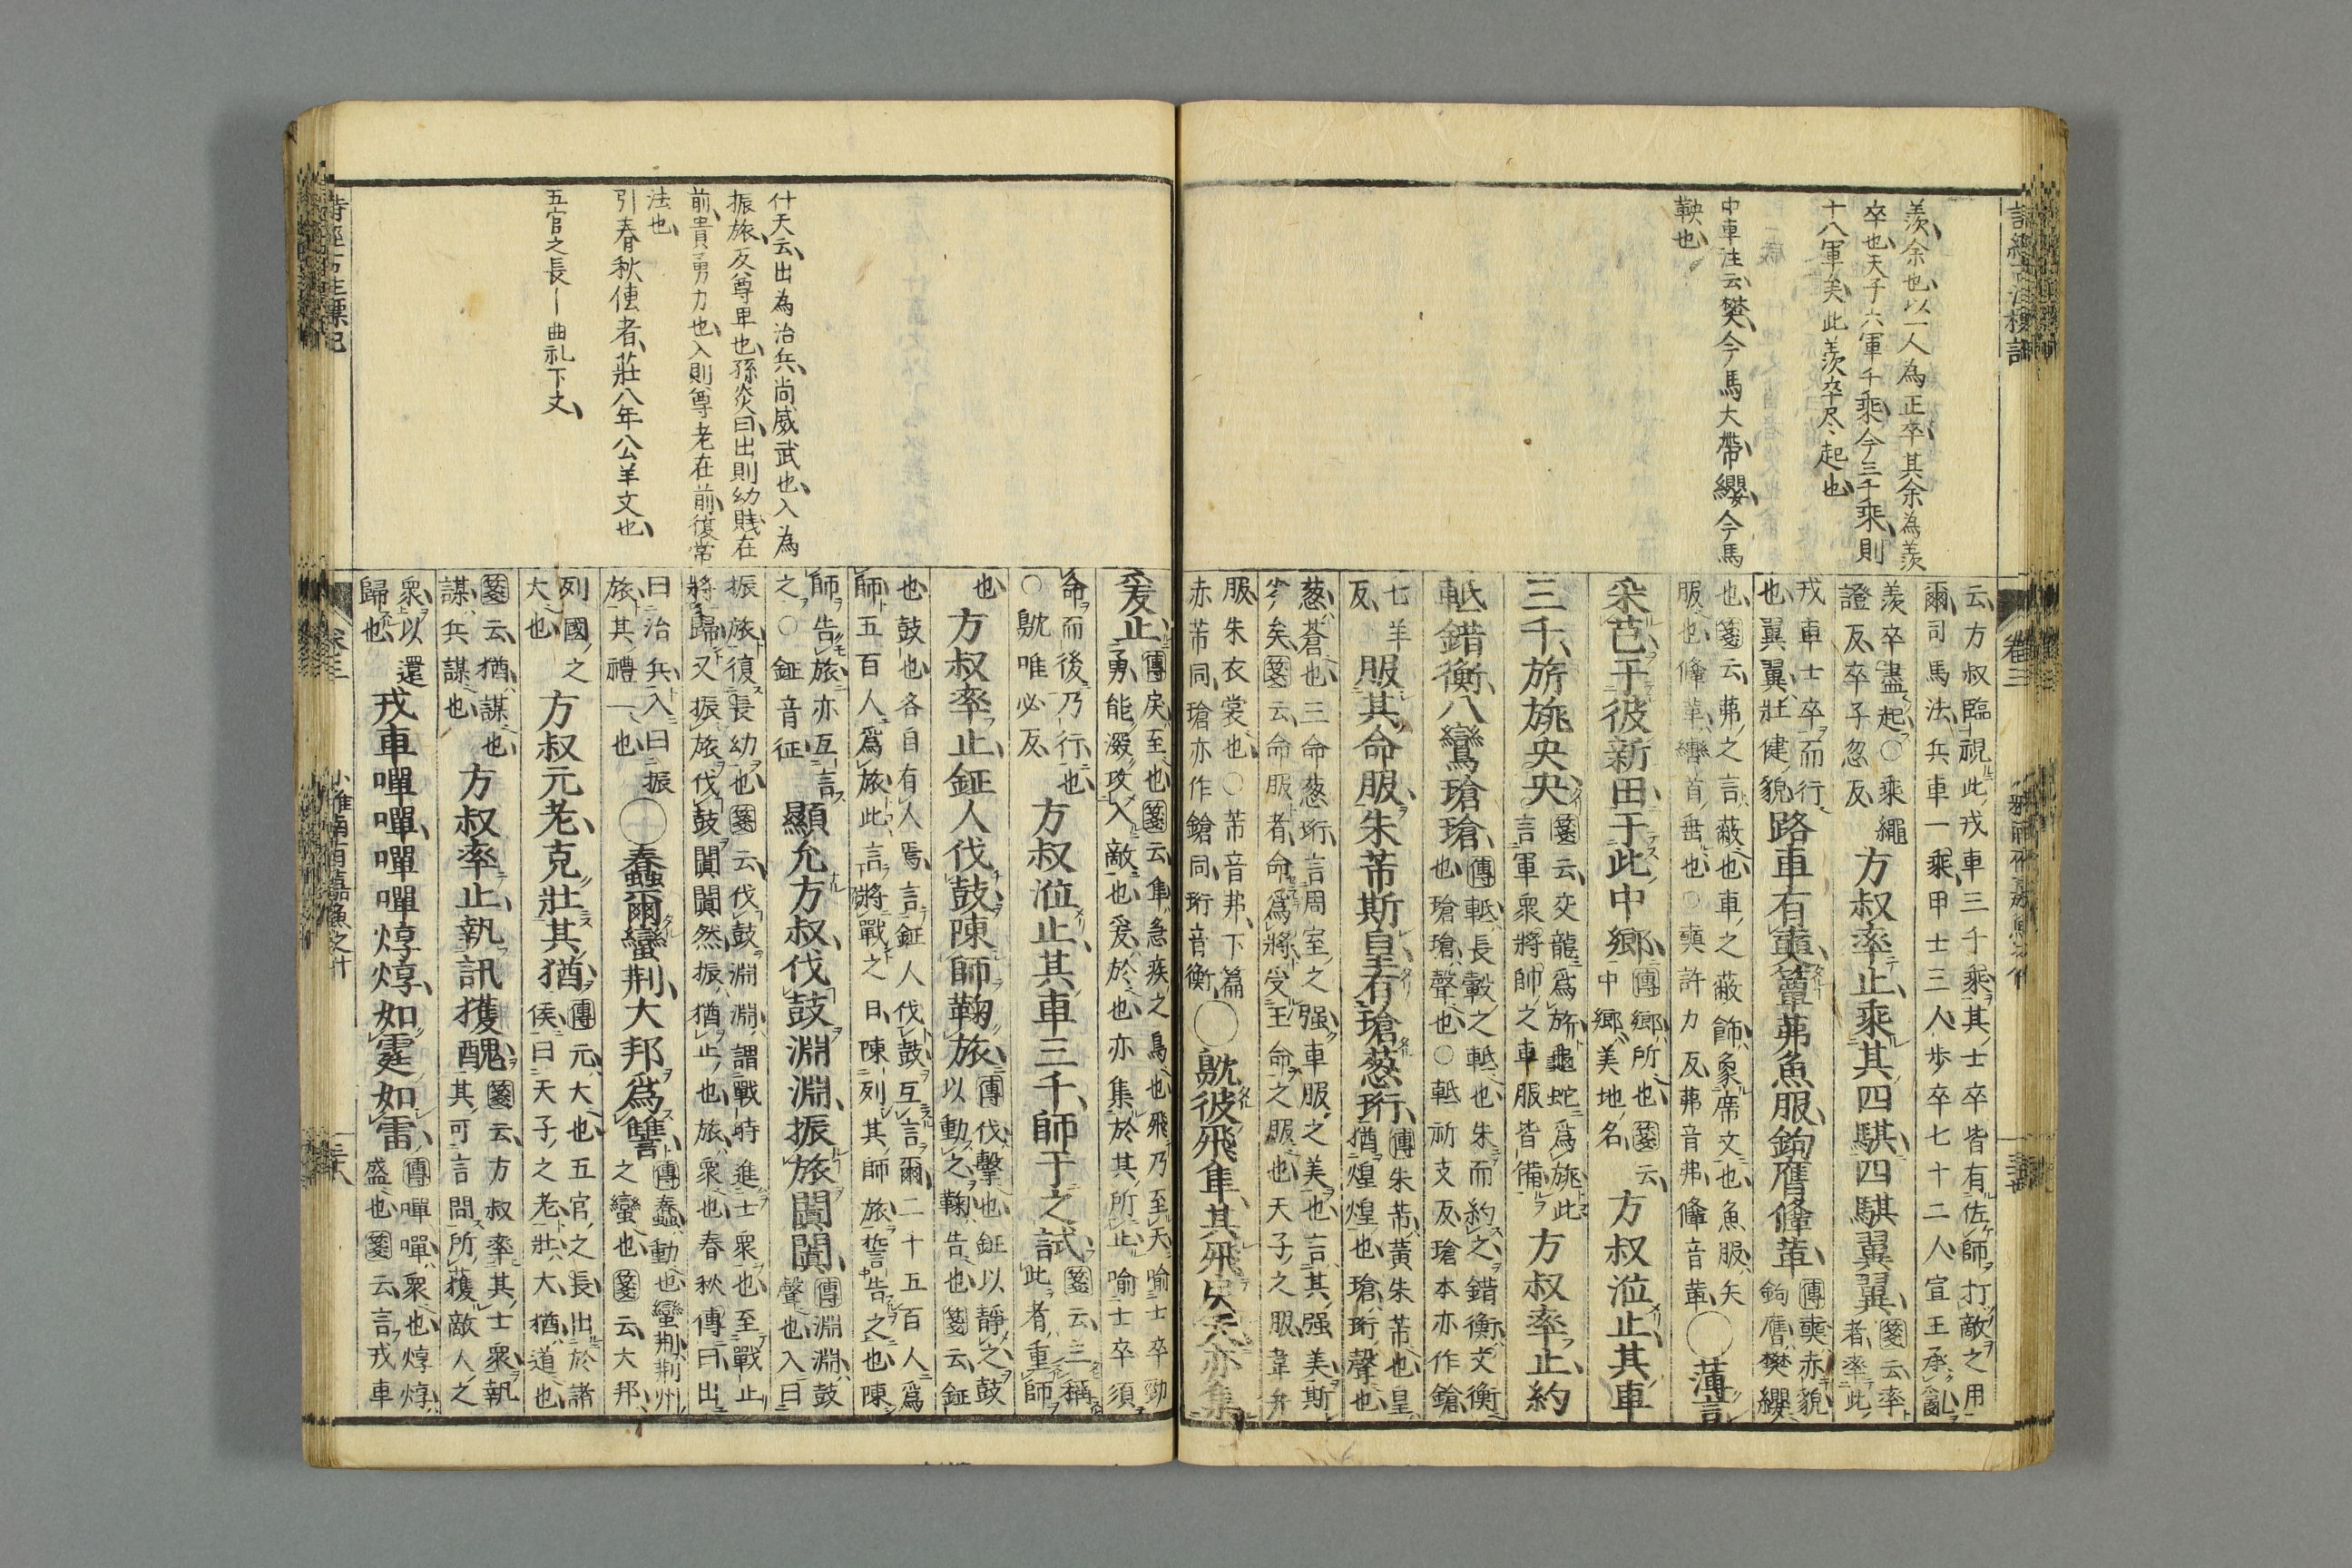 羨余也以一人為正卒其余為羨
卒也天子六軍千乘今三千乘則
十八軍矣此羨卒尽起也
中車注云樊今馬大帶纓今馬
鞅也
卷三
云方叔臨視此戎車三千乘其士卒皆有佐師打敵之用
爾司馬法兵車一乘甲士三人歩卒七十二人宣王承亂
羨卒盡起○乘繩
證反卒子忽反
方叔率止乘其四騏四騏翼翼
箋云率
者率此
戎車士卒而行
也翼翼壯健貌
路車有奭簟茀魚服鉤膺鞗革
傳奭赤貌
鉤膺樊纓
也箋云茀之言蔽也車之蔽飾象席文也魚服矢
服也鞗革轡首垂也○奭許力反茀音弗鞗音革
○薄言
采芑于彼新田于此中鄉
傳鄉所也箋云
中鄉美地名
方叔涖止其車
三千旂旐央央
箋云交龍爲旂龜蛇爲旐此
言軍衆將帥之車服皆備
方叔率止約
軝錯衡八鸞瑲瑲
傳軝長轂之軝也朱而約之錯衡文衡
也瑲瑲聲也○軝祈支反瑲本亦作鎗
七羊
反
服其命服朱芾斯皇有瑲葱珩
傳朱芾黃朱芾也皇
猶煌煌也瑲珩聲也
葱蒼也三命葱珩言周室之强車服之美也言其强美斯
劣矣箋云命服者命爲將受王命之服也天子之服韋弁
服朱衣裳也○芾音弗下篇
赤芾同瑲亦作鎗同珩音衡
○鴥彼飛隼其飛戾天亦集
什天云出為治兵尚威武也入為
振旅反尊卑也孫炎曰出則幼賤在
前貴勇力也入則尊老在前復常
法也
引春秋傳者莊八年公羊文也
五官之長ー曲礼下文
爰止
傳戾至也箋云隼急疾之鳥也飛乃至天喻士卒勁
勇能深攻入敵也爰於也亦集於其所止喻士卒須
命而後乃行也
○鴥唯必反
方叔涖止其車三千師干之試
箋云三稱
此者重師
也
方叔率止鉦人伐鼓陳師鞠旅
傳伐擊也鉦以靜之鼓
以動之鞠告也箋云鉦
也鼓也各自有人焉言鉦人伐鼓互言爾二千五百人爲
師五百人爲旅此言將戰之日陳列其師旅誓告之也陳
師告旅亦互言
之○鉦音征
顯允方叔伐鼓淵淵振旅闐闐
傳淵淵鼓
聲也入曰
振旅復長幼也箋云伐鼓淵淵謂戰時進士衆也至戰止
將歸又振旅伐鼓闐闐然振猶止也旅衆也春秋傳曰出
曰治兵入曰振
旅其禮一也
○蠢爾蠻荆大邦爲讐
傳蠢動也蠻荆荆州
之蠻也箋云大邦
列國之
大也
方叔元老克壯其猶
傳元大也五官之長出於諸
侯曰天子之老壯大猶道也
箋云猶謀也
謀兵謀也
方叔率止執訊獲醜
箋云方叔率其士衆執
其可言問所獲敵人之
衆以還
歸也
戎車嘽嘽嘽嘽焞焞如霆如雷
傳嘽嘽衆也焞焞
盛也箋云言戎車
卷三
小雅南有嘉魚之什